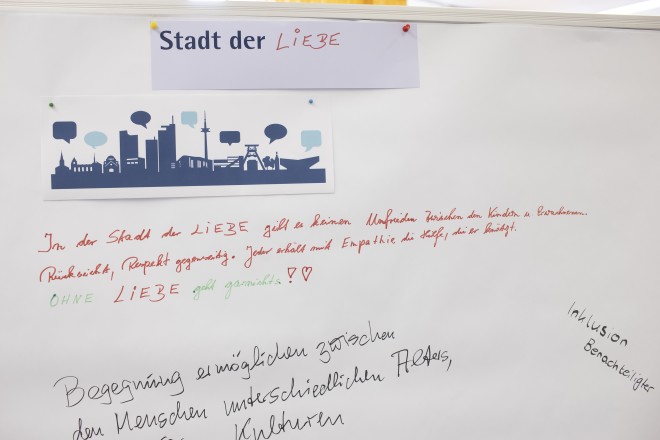 Stadt der LiEBE
In der Stadt der LiEBE gibt es keinen Unfrieden zwischen den Kindern u. Erwachsenen.
Rücksicht, Respekt gegenseitig. Jeder erhält mit Empathie die Hilfe, die er benötigt.
OHNE LiEBE geht garnichts! ♡
Begegnung ermöglichen zwischen
den Menschen unterschiedlichen Alters,
Kulturen
Inklusion
Benachteiligter